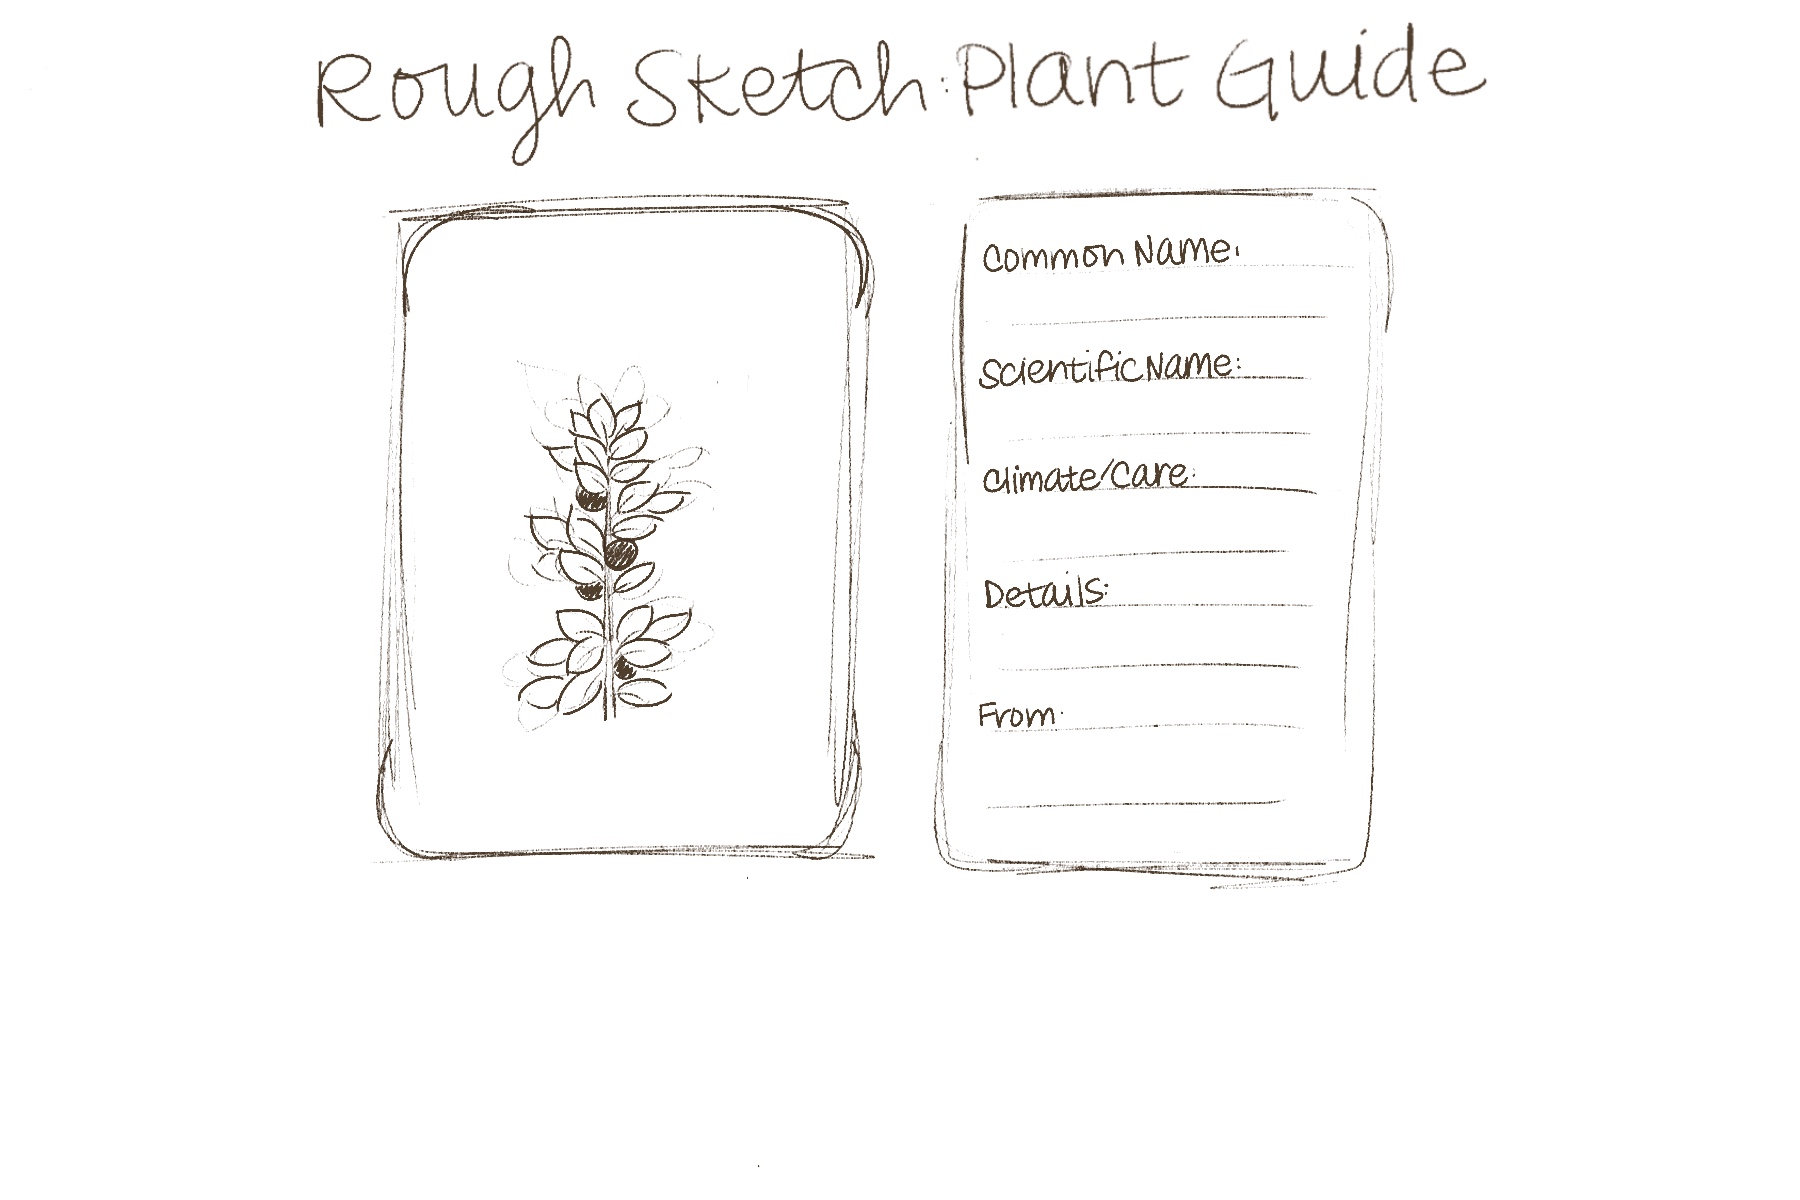 Rough Sketch: Plant Guide
Common Name:
Scientific Name:
Climate/Care:
Details:
From: